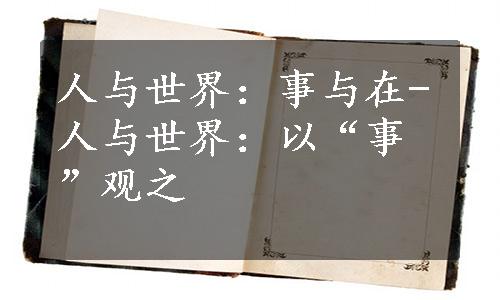 人与世界：事与在-
人与世界：以“事
”观之